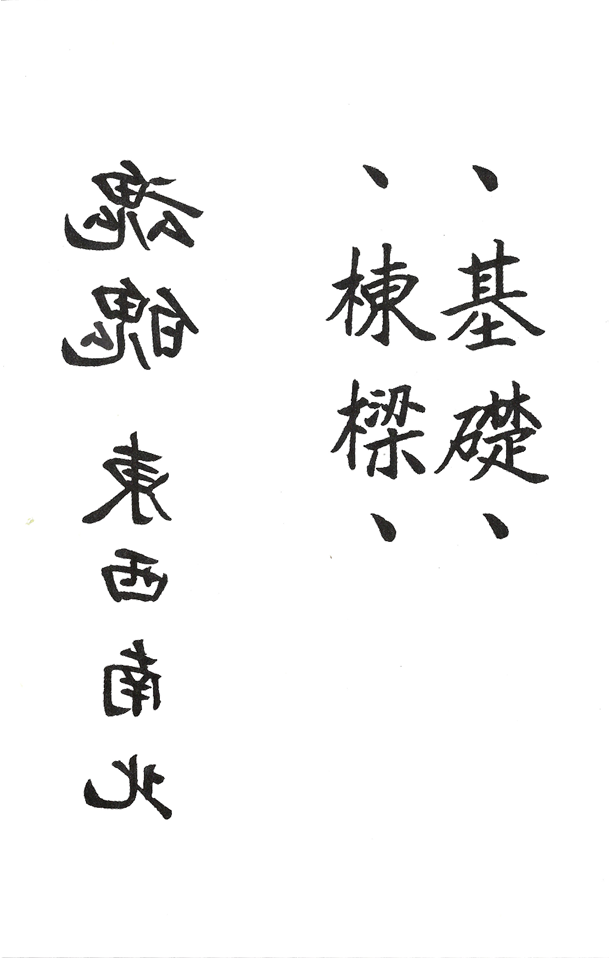 、基礎、
、棟樑、
魂魄 東西南北